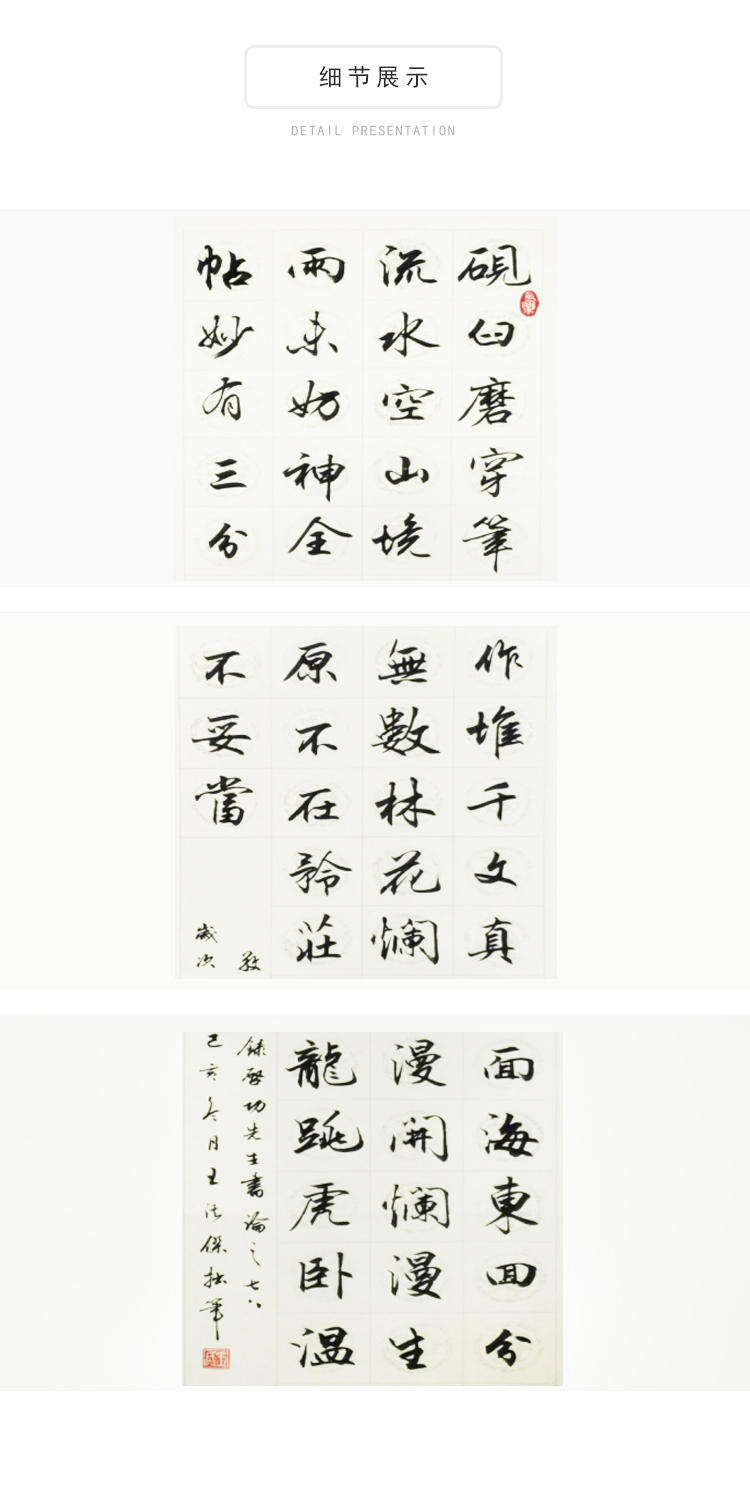 细节展示
DETAIL PRESENTATION
硯臼磨穿筆
流水空山境
兩未妨神全
帖妙有三分
作堆千文真
無數林花爛
原不在矜莊
不妥當
敬
歲次
面海東回分
漫開爛漫生
龍跳虎卧温
錄啓功先生書論之七八
己亥冬月王法傑拙筆